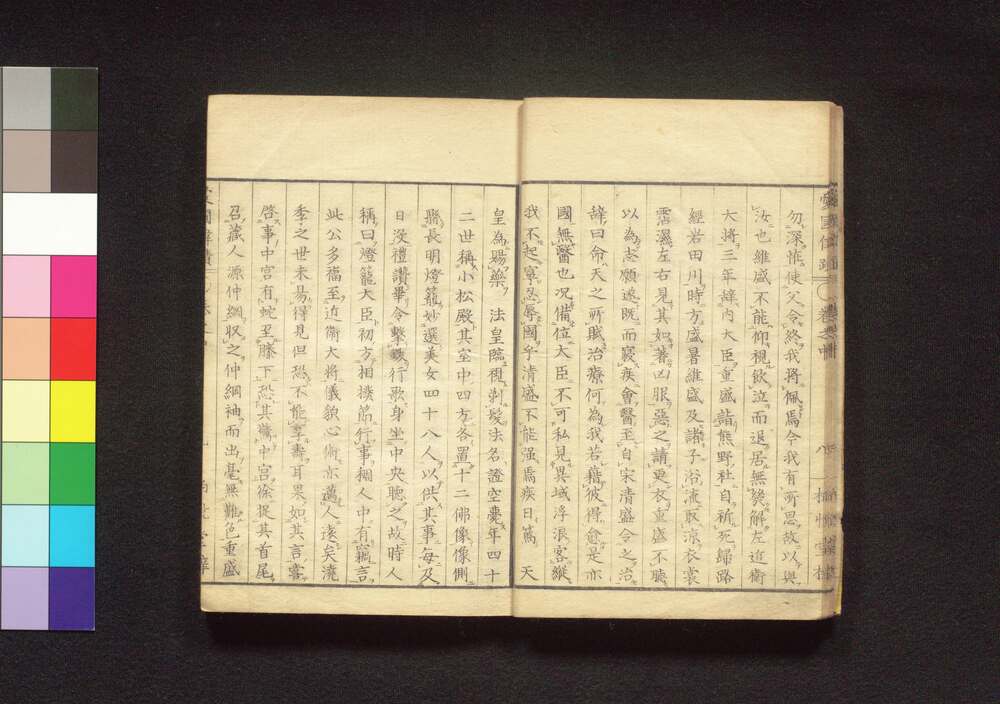 勿深怪使父令終我將佩焉今我有所思故以與
汝也維盛不能仰視飲泣而退居無幾解左近衞
大將三年辭內大臣重盛詣熊野社自祈死歸路
經岩田川時方盛暑維盛及諸子浴流取涼衣裳
霑濕左右見其如著凶服惡之請更衣重盛不聽
以為志願遂既而寢疾會醫至自宋清盛令之治
辭曰命天之所賦治療何為我若藉彼得愈是亦
國無醫也况備位大臣不可私見異域浮浪客縱
我不起寧忍辱國乎清盛不能强焉疾日篤 天
皇為賜藥 法皇臨視剃髮法名證空薨年四十
二世稱小松殿其室中四方各置十二佛像像側
縣長明燈籠妙選美女四十八人以供其事每及
日没禮讚畢令擊鼓行歌身坐中央聽之故時人
稱曰燈籠大臣初方相撲節行事稠人中有竊言
此公多福至近衞大將儀貌心術亦邁人遠矣澆
季之世未易得見但恐不能享壽耳果如其言嘗
啓事中宮有蛇至膝下恐其驚中宮徐捉其首尾
召藏人源仲綱収之仲綱袖而出毫無難色重盛